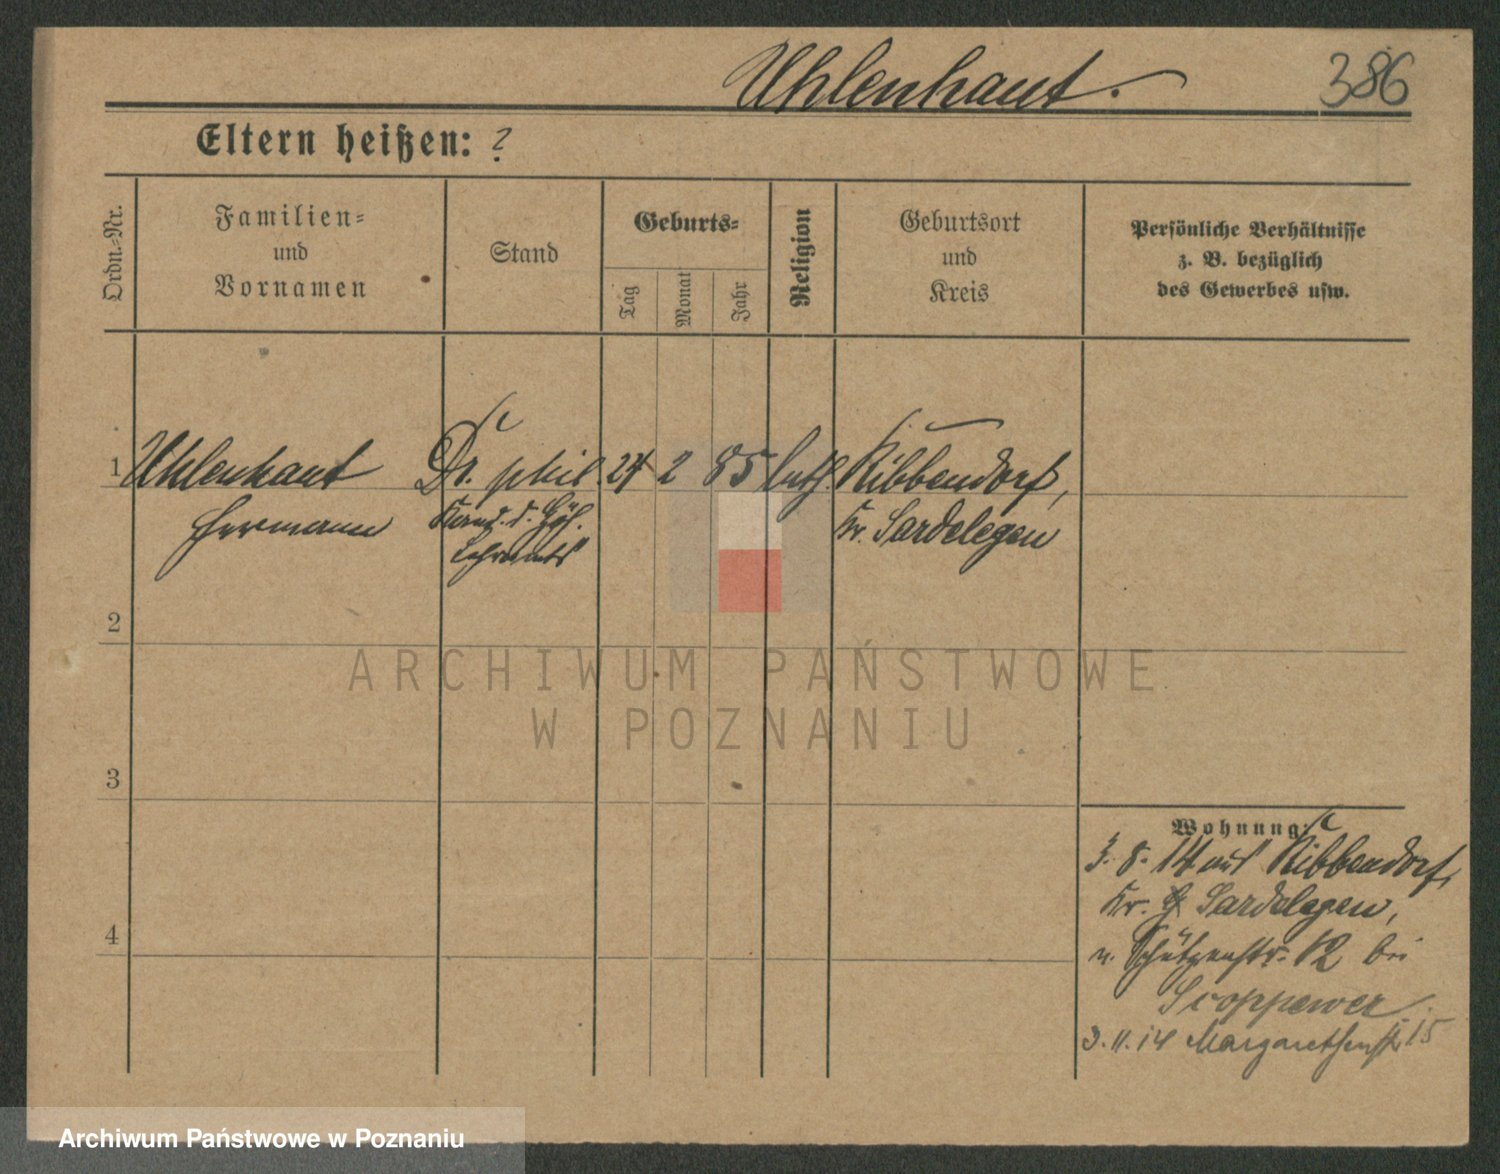 Uhlenhaut.
386
Eltern heißen: ?
Ordn.-Nr.
Familien-
und
Vornamen
Stand
Geburts-
Tag
Monat
Jahr
Religion
Geburtsort
und
Kreis
Persönliche Verhältnisse
z. B. bezüglich
des Gewerbes usw.
1 Uhlenhaut Dr. phil. 24 2 85 luth. Ribbendorf,
Hermann Kand. d. Höh. Kr. Gardelegen
Lehramts
2
ARCHIWUM PAŃSTWOWE
W POZNANIU
3
Wohnung:
3. 8. 14 aus Ribbendorf,
4
Kr. Gardelegen,
n. Schützenstr. 12 bei
3. 11. 14 Margarethenstr. 15
Archiwum Państwowe w Poznaniu